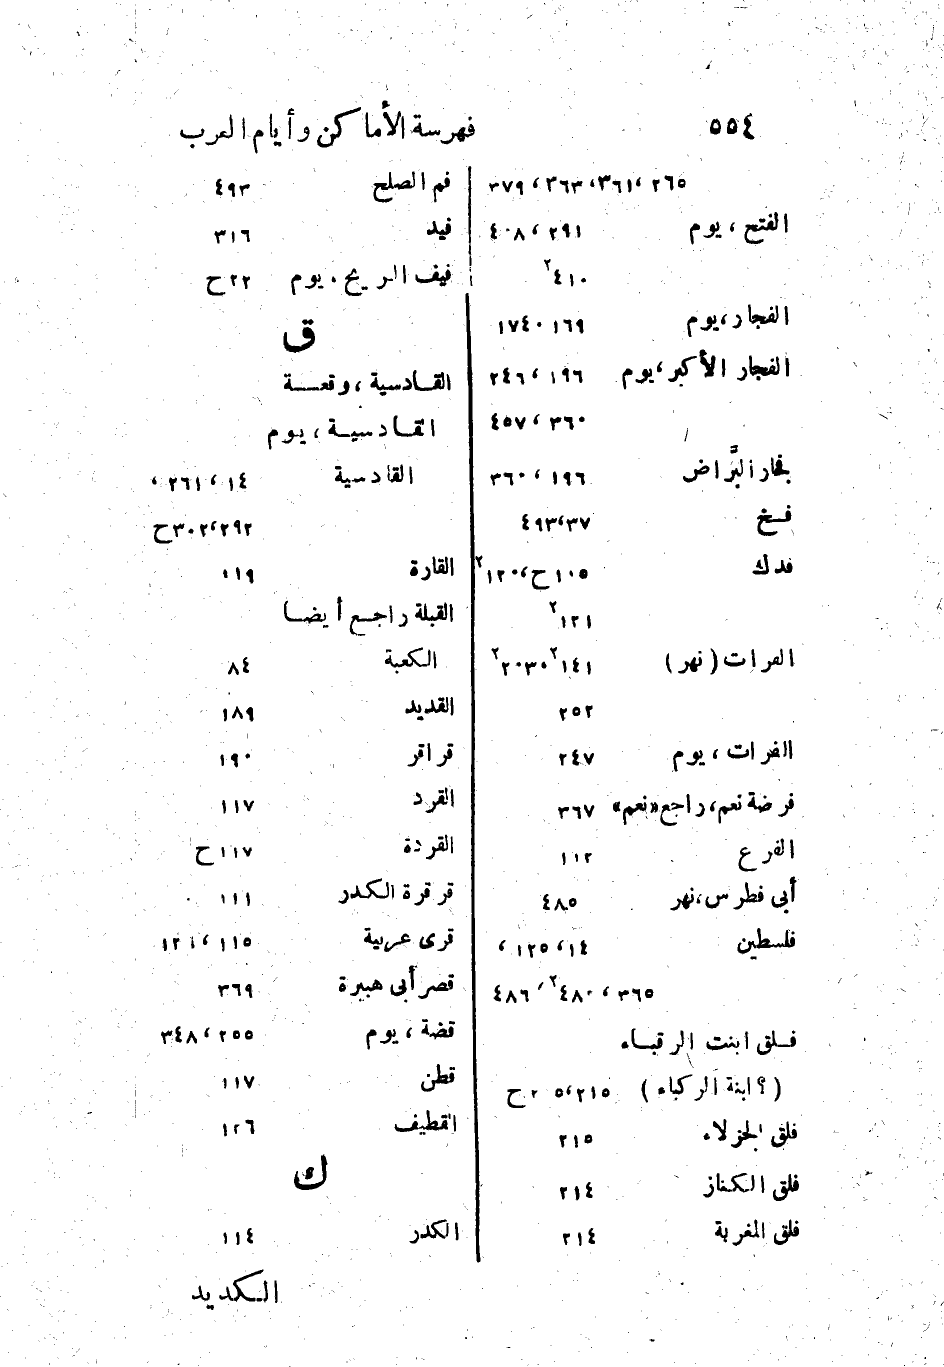 ٥٥٤
فهرسة الأماكن وأيام العرب
٢٦٥، ٣٦١، ٣٦٣، ٣٧٩
الفتح، يوم ٢٩١، ٤٠٨
٤١٠٢
الفجار، يوم ١٦٩، ١٧٤
الفجار الأكبر، يوم ١٩٦، ٢٤٦
٣٦٠، ٤٥٧
فجار البرَّاض ١٩٦، ٣٦٠
فخ ٣٧، ٤٩٣
فدك ١٠٥ح، ١٢٠٢
١٢١٢
الفرات (نهر) ١٤١٢، ٢٠٣، ٢
٢٥٢
الفرات، يوم ٢٤٧
فرضة نعم، راجع «نعم» ٣٦٧
الفرع ١١٢
أبى فطرس، نهر ٤٨٥
فلسطين ١٤، ١٢٥،
٣٦٥، ٤٨٠٢، ٤٨٦
فلق ابنت الرقباء
(؟ ابنة الركباء) ٢١٥، ح
فلق الجزلاء ٢١٥
فلق الكناز ٢١٤
فلق المغربة ٢١٤
فم الصلح ٤٩٣
فيد ٣١٦
فيف الريح، يوم ٢٢ح
ق
القادسية، وقعة
القادسية، يوم
القادسية ١٤، ٢٦١،
٢٩٢، ٣٠٢ح
القارة ١١٩
القبلة راجع أيضا
الكعبة ٨٤
القديد ١٨٩
قراقر ١٩٠
القرد ١١٧
القردة ١١٧ح
قرقرة الكدر ١١١
قرى عربية ١١٥، ١٢١
قصر أبى هبيرة ٣٦٩
قضة، يوم ٢٥٥، ٣٤٨
قطن ١١٧
القطيف ١٢٦
ك
الكدر ١١٤
الكديد